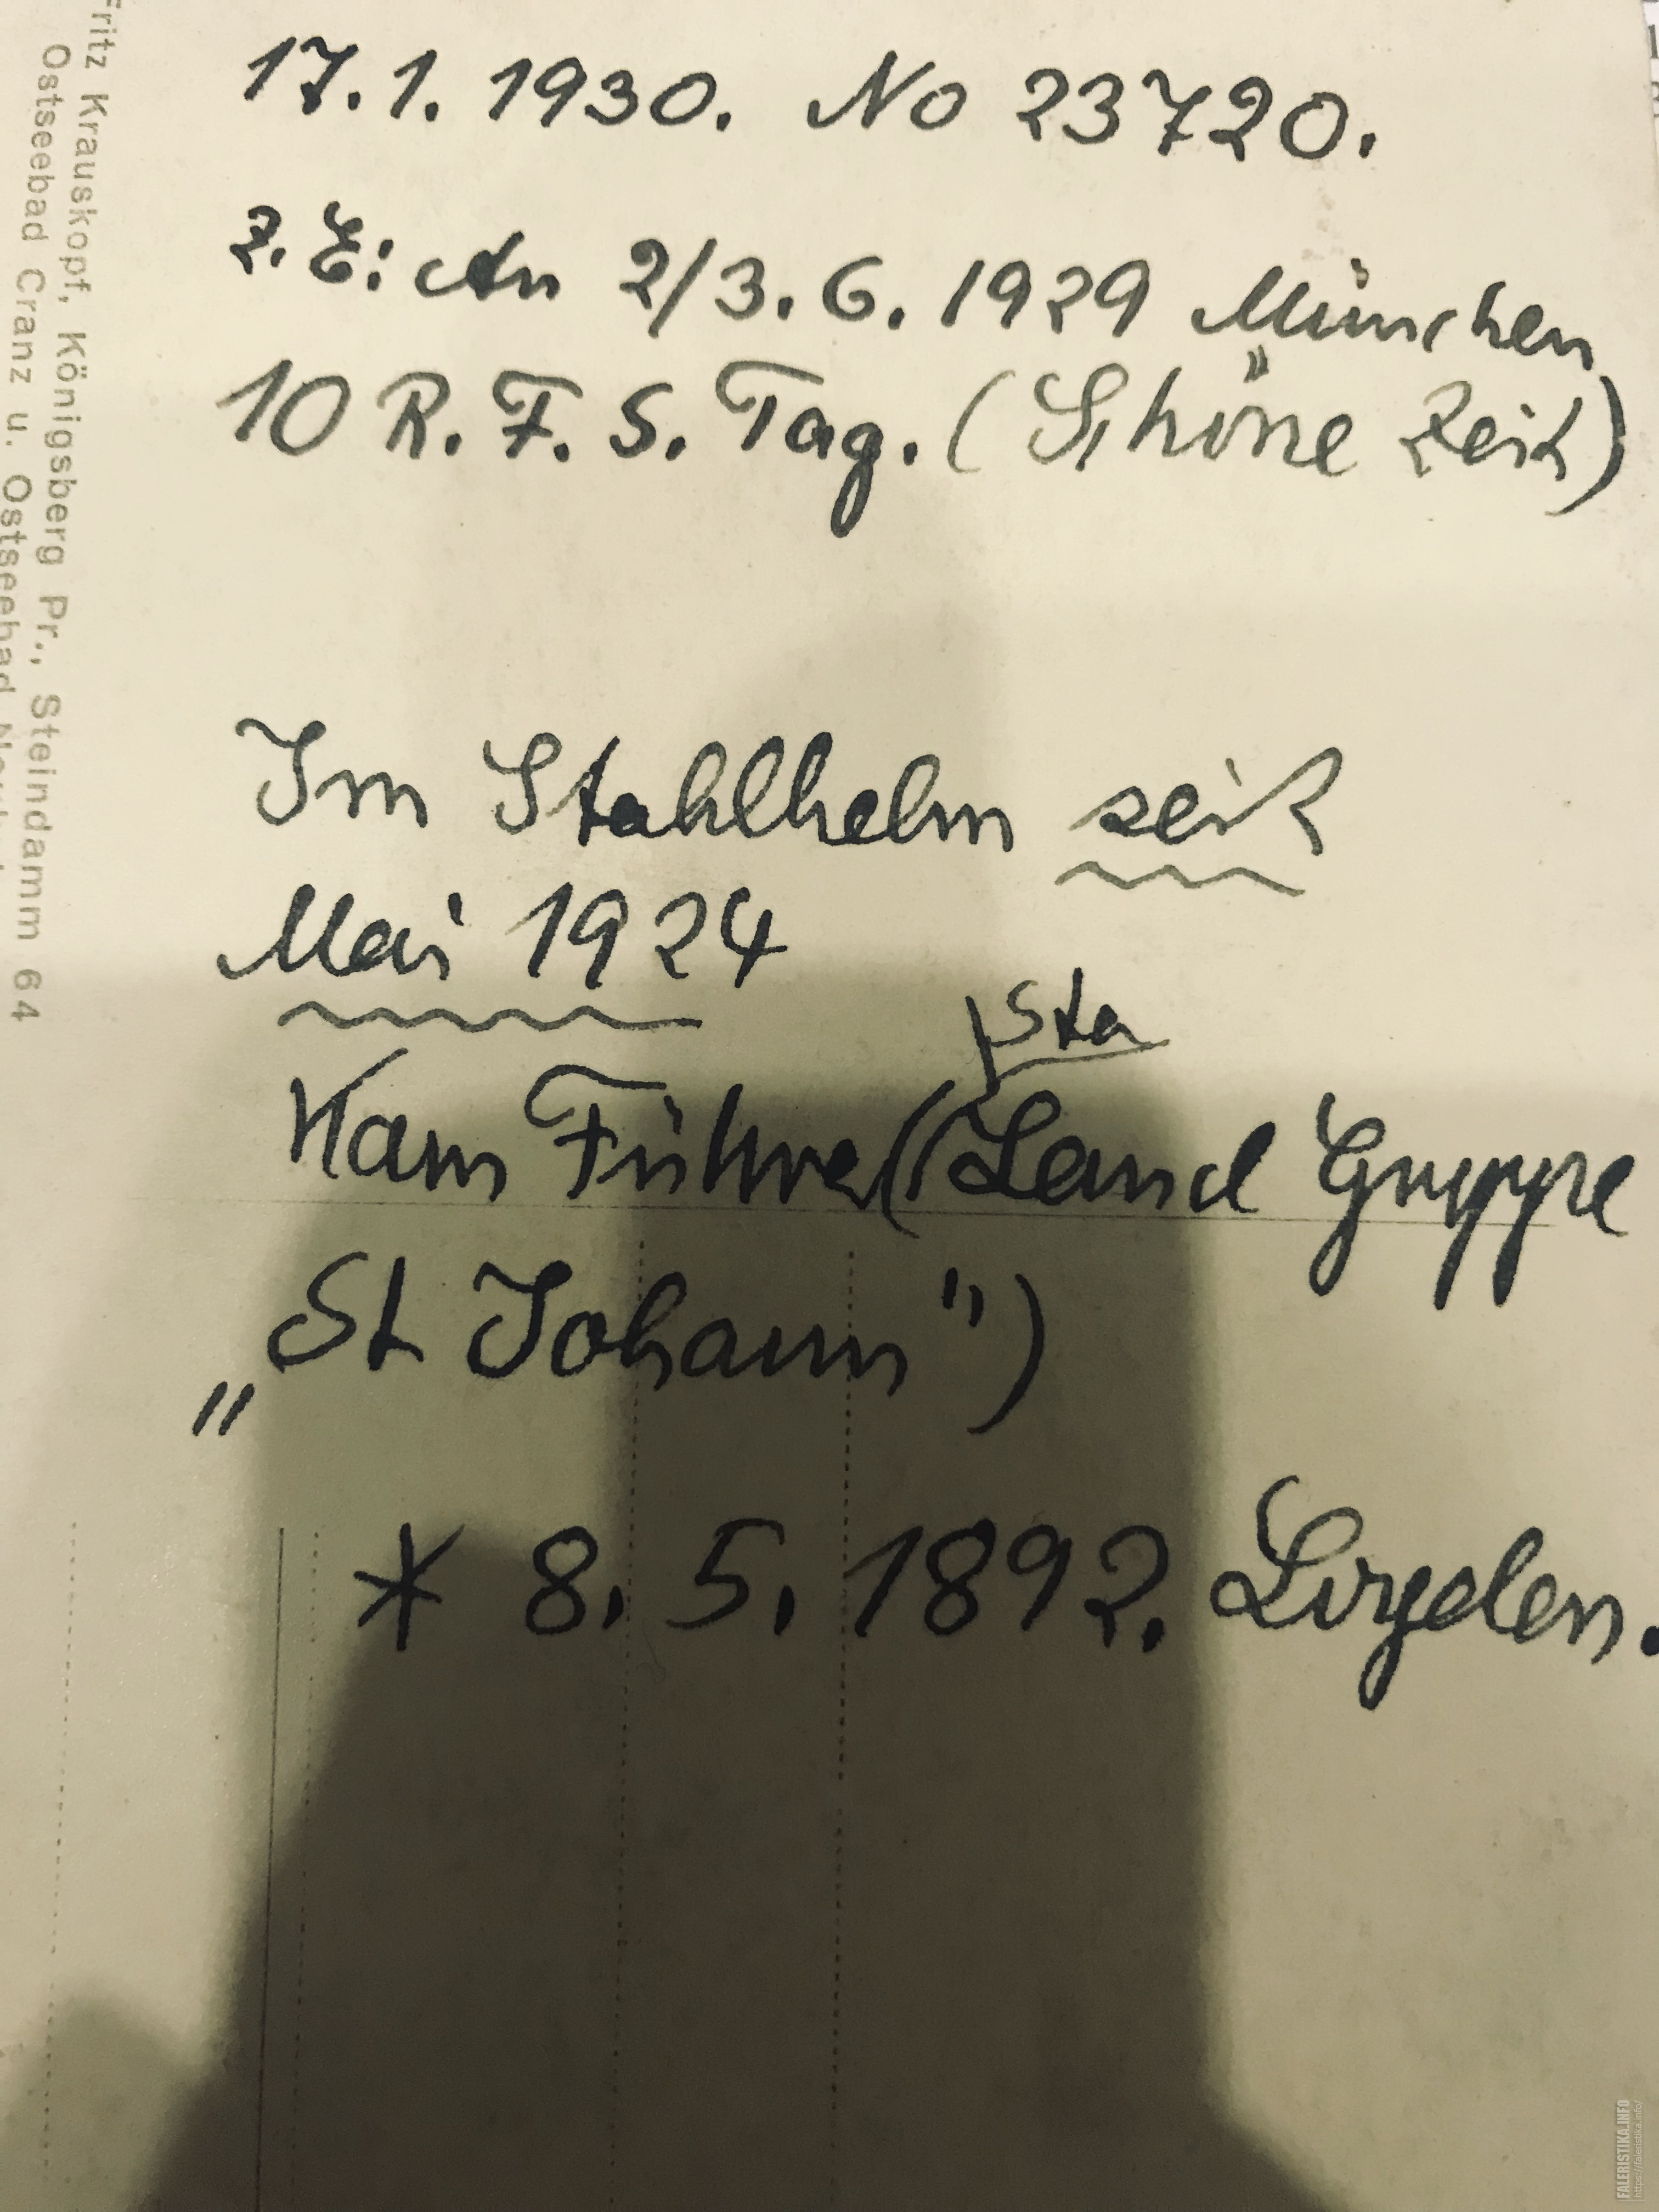 17.1.1930. No 23720.
z. E: An 2/3.6.1929 München
10 R. F. S. Tag. (Schöne Zeit)
Im Stahlhelm seit
Mai 1924
Sta
Kam Führer (Land Gruppe
„St Johann")
* 8.5.1892.
Fritz Krauskopf, Königsberg Pr., Steindamm 64
Ostseebad Cranz u. Ostseebad
FALERISTIKA.INFO
https://faleristika.info/